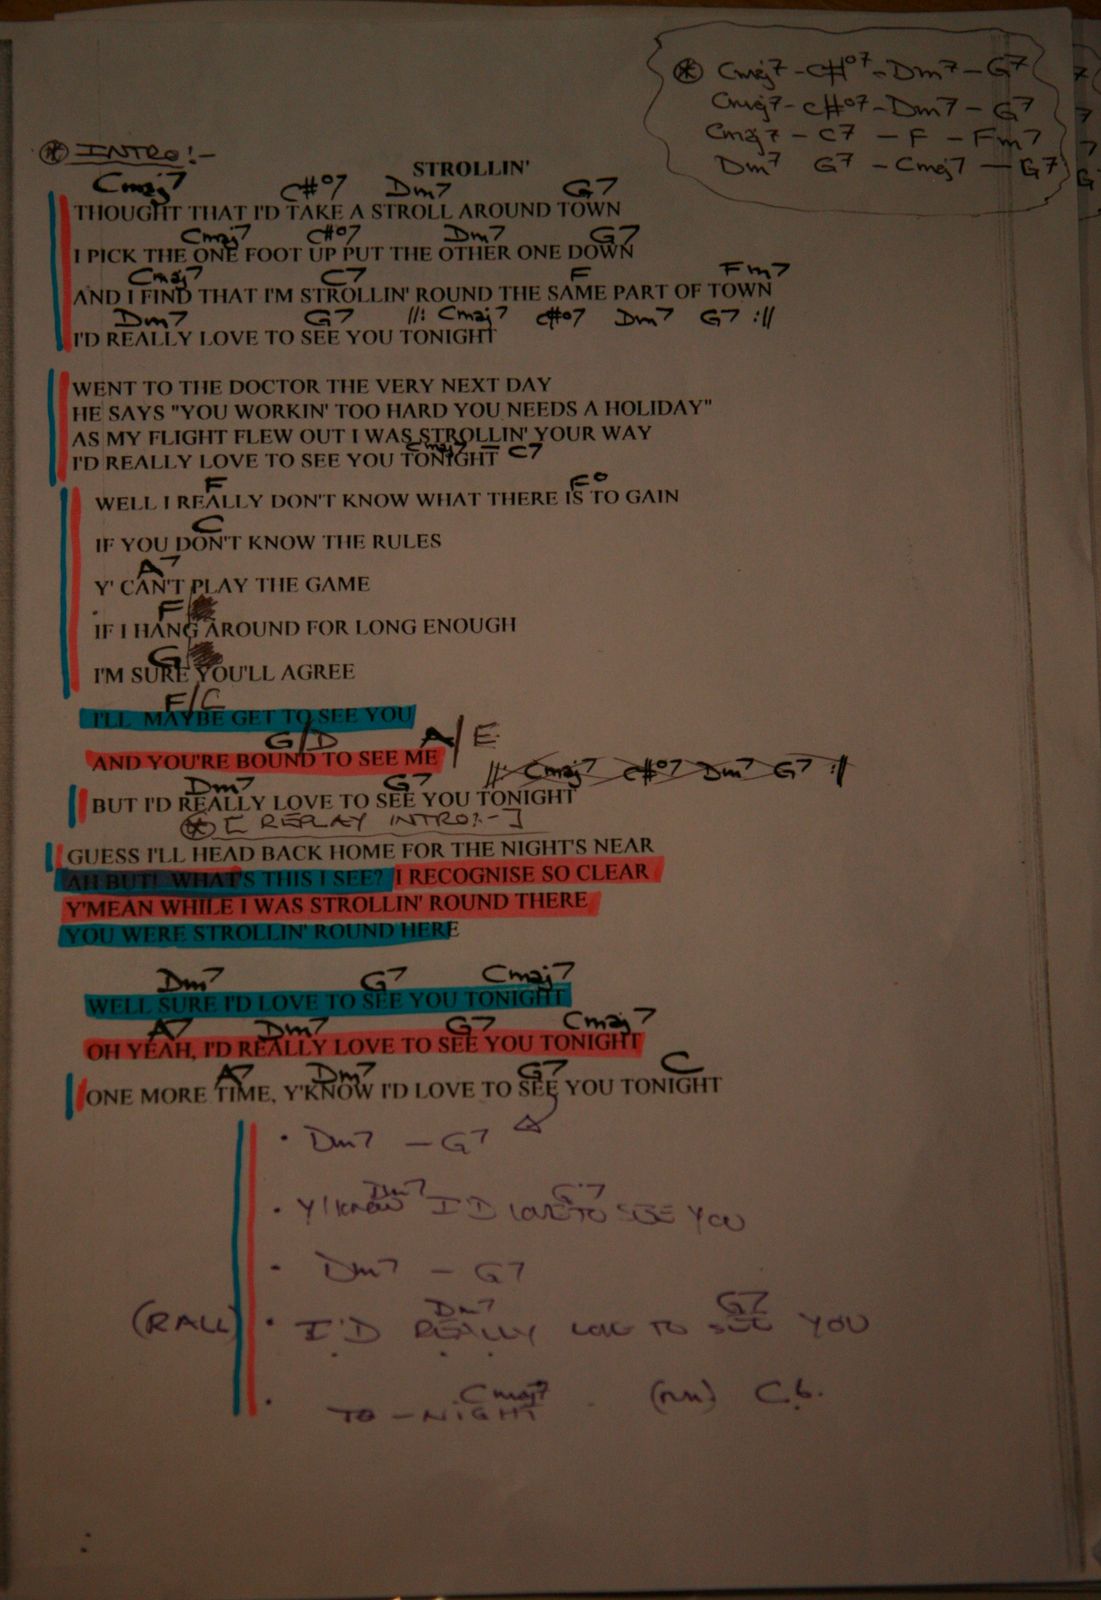 * Cmaj7 - C#o7 - Dm7 - G7
Cmaj7 - C#o7 - Dm7 - G7
Cmaj7 - C7 - F - Fm7
Dm7 G7 - Cmaj7 - G7
* INTRO:-
STROLLIN'
Cmaj7 C#o7 Dm7 G7
THOUGHT THAT I'D TAKE A STROLL AROUND TOWN
Cmaj7 C#o7 Dm7 G7
I PICK THE ONE FOOT UP PUT THE OTHER ONE DOWN
Cmaj7 C7 F Fm7
AND I FIND THAT I'M STROLLIN' ROUND THE SAME PART OF TOWN
Dm7 G7 //: Cmaj7 C#o7 Dm7 G7 ://
I'D REALLY LOVE TO SEE YOU TONIGHT
WENT TO THE DOCTOR THE VERY NEXT DAY
HE SAYS "YOU WORKIN' TOO HARD YOU NEEDS A HOLIDAY"
AS MY FLIGHT FLEW OUT I WAS STROLLIN' YOUR WAY
Cmaj7 - C7
I'D REALLY LOVE TO SEE YOU TONIGHT
F Fo
WELL I REALLY DON'T KNOW WHAT THERE IS TO GAIN
C
IF YOU DON'T KNOW THE RULES
A7
Y' CAN'T PLAY THE GAME
F/
IF I HANG AROUND FOR LONG ENOUGH
G/
I'M SURE YOU'LL AGREE
F/C
I'LL MAYBE GET TO SEE YOU
G/D A/E
AND YOU'RE BOUND TO SEE ME
Dm7 G7 //: Cmaj7 C#o7 Dm7 G7 ://
BUT I'D REALLY LOVE TO SEE YOU TONIGHT
* [ REPLAY INTRO:- ]
GUESS I'LL HEAD BACK HOME FOR THE NIGHT'S NEAR
AH BUT! WHAT'S THIS I SEE? I RECOGNISE SO CLEAR
Y'MEAN WHILE I WAS STROLLIN' ROUND THERE
YOU WERE STROLLIN' ROUND HERE
Dm7 G7 Cmaj7
WELL SURE I'D LOVE TO SEE YOU TONIGHT
A7 Dm7 G7 Cmaj7
OH YEAH, I'D REALLY LOVE TO SEE YOU TONIGHT
A7 Dm7 G7 C
ONE MORE TIME, Y'KNOW I'D LOVE TO SEE YOU TONIGHT
• Dm7 - G7
Dm7 G7
• Y'KNOW I'D LOVE TO SEE YOU
• Dm7 - G7
Dm7 G7
(RALL) • I'D REALLY LOVE TO SEE YOU
Cmaj7 (run) C6.
• TO-NIGHT